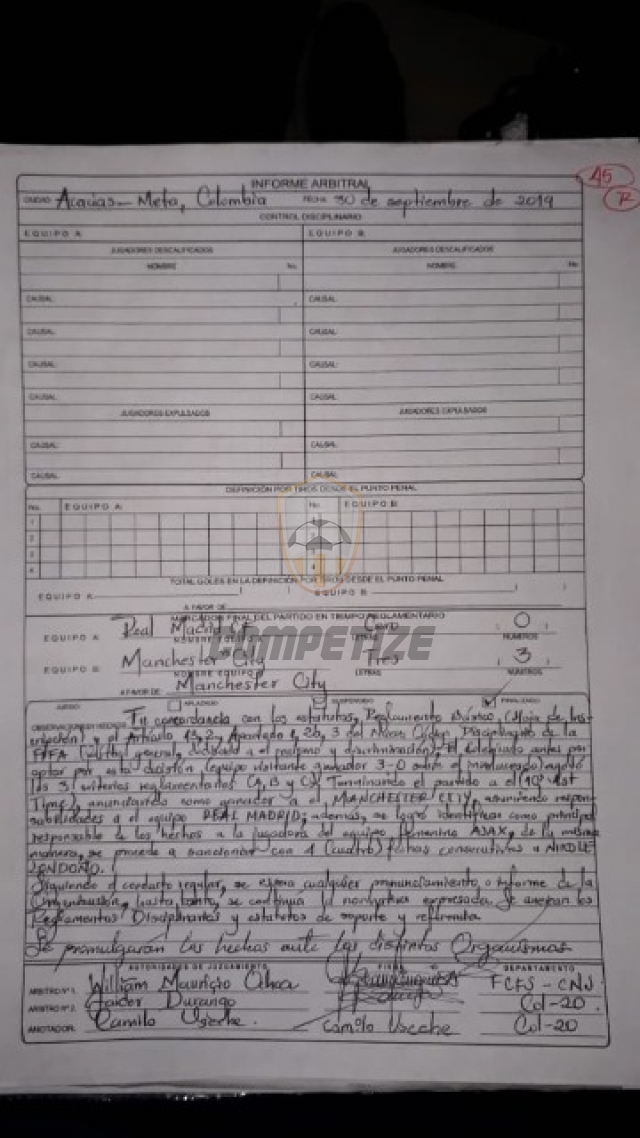 INFORME ARBITRAL
A5
R
CIUDAD Acacias - Meta, Colombia FECHA 30 de septiembre de 2019
CONTROL DISCIPLINARIO
EQUIPO A: EQUIPO B:
JUGADORES DESCALIFICADOS JUGADORES DESCALIFICADOS
NOMBRE No. NOMBRE No
CAUSAL: CAUSAL:
CAUSAL: CAUSAL:
CAUSAL: CAUSAL:
CAUSAL: CAUSAL:
JUGADORES EXPULSADOS JUGADORES EXPULSADOS
CAUSAL: CAUSAL:
CAUSAL: CAUSAL:
DEFINICIÓN POR TIROS DESDE EL PUNTO PENAL
No. EQUIPO A: No. EQUIPO B:
1 1
2
3
4 4
TOTAL GOLES EN LA DEFINICIÓN POR TIROS DESDE EL PUNTO PENAL
EQUIPO A: ( ) EQUIPO B: ( )
A FAVOR DE
MARCADOR FINAL DEL PARTIDO EN TIEMPO REGLAMENTARIO
EQUIPO A: Real Madrid C.F Cero 0
NOMBRE EQUIPO LETRAS NUMEROS
COMPETIZE
EQUIPO B: Manchester City Tres 3
NOMBRE EQUIPO LETRAS NUMEROS
A FAVOR DE: Manchester City
JUEGO: APLAZADO SUSPENDIDO FINALIZADO
OBSERVACIONES En concordancia con los estatutos, Reglamento
y el Artículo 13, 2, Apartado 1, 2a, 3 del Disciplinario de la
FIFA general, dedicado a el racismo y discriminación). El delegado antes por
optar por esta decisión (equipo visitante ganador 3-0 sobre el
los 3 criterios reglamentarios (A, B y C). Terminando el partido a el 1st
Time), anunciando como ganador a el MANCHESTER CITY, asumiendo respon-
sabilidades a el equipo REAL MADRID; además, se logró identificar como principal
responsable de los hechos a la jugadora del equipo femenino AJAX, de la misma
manera, se procede a sancionar con 4 (cuatro) fechas consecutivas a NIKOLLE
LONDOÑO.
Siguiendo el conducto regular, se espera cualquier pronunciamiento, o informe de la
hasta tanto, se continua la normativa expresada. Se anexan los
Reglamentos Disciplinarios y estatutos de soporte y
Se promulgaran los hechos ante los distintos Organismos
AUTORIDADES DE JUZGAMIENTO FIRMA DEPARTAMENTO
ARBITRO Nº 1. William Mauricio Ochoa FCFS - CNJ
ARBITRO Nº 2. Durango Col-20
ANOTADOR: Camilo Useche. Camilo Useche Col-20